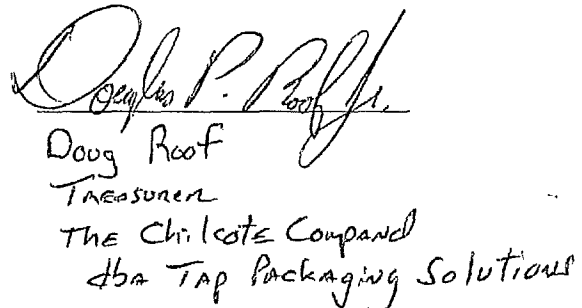 Douglas P. Roof Jr.
Doug Roof
Treasurer
The Chilcote Company
dba TAP Packaging Solutions